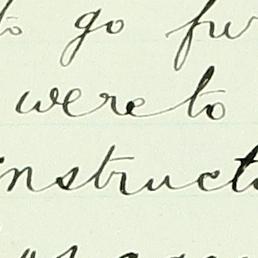 to go fur
were to
instruct